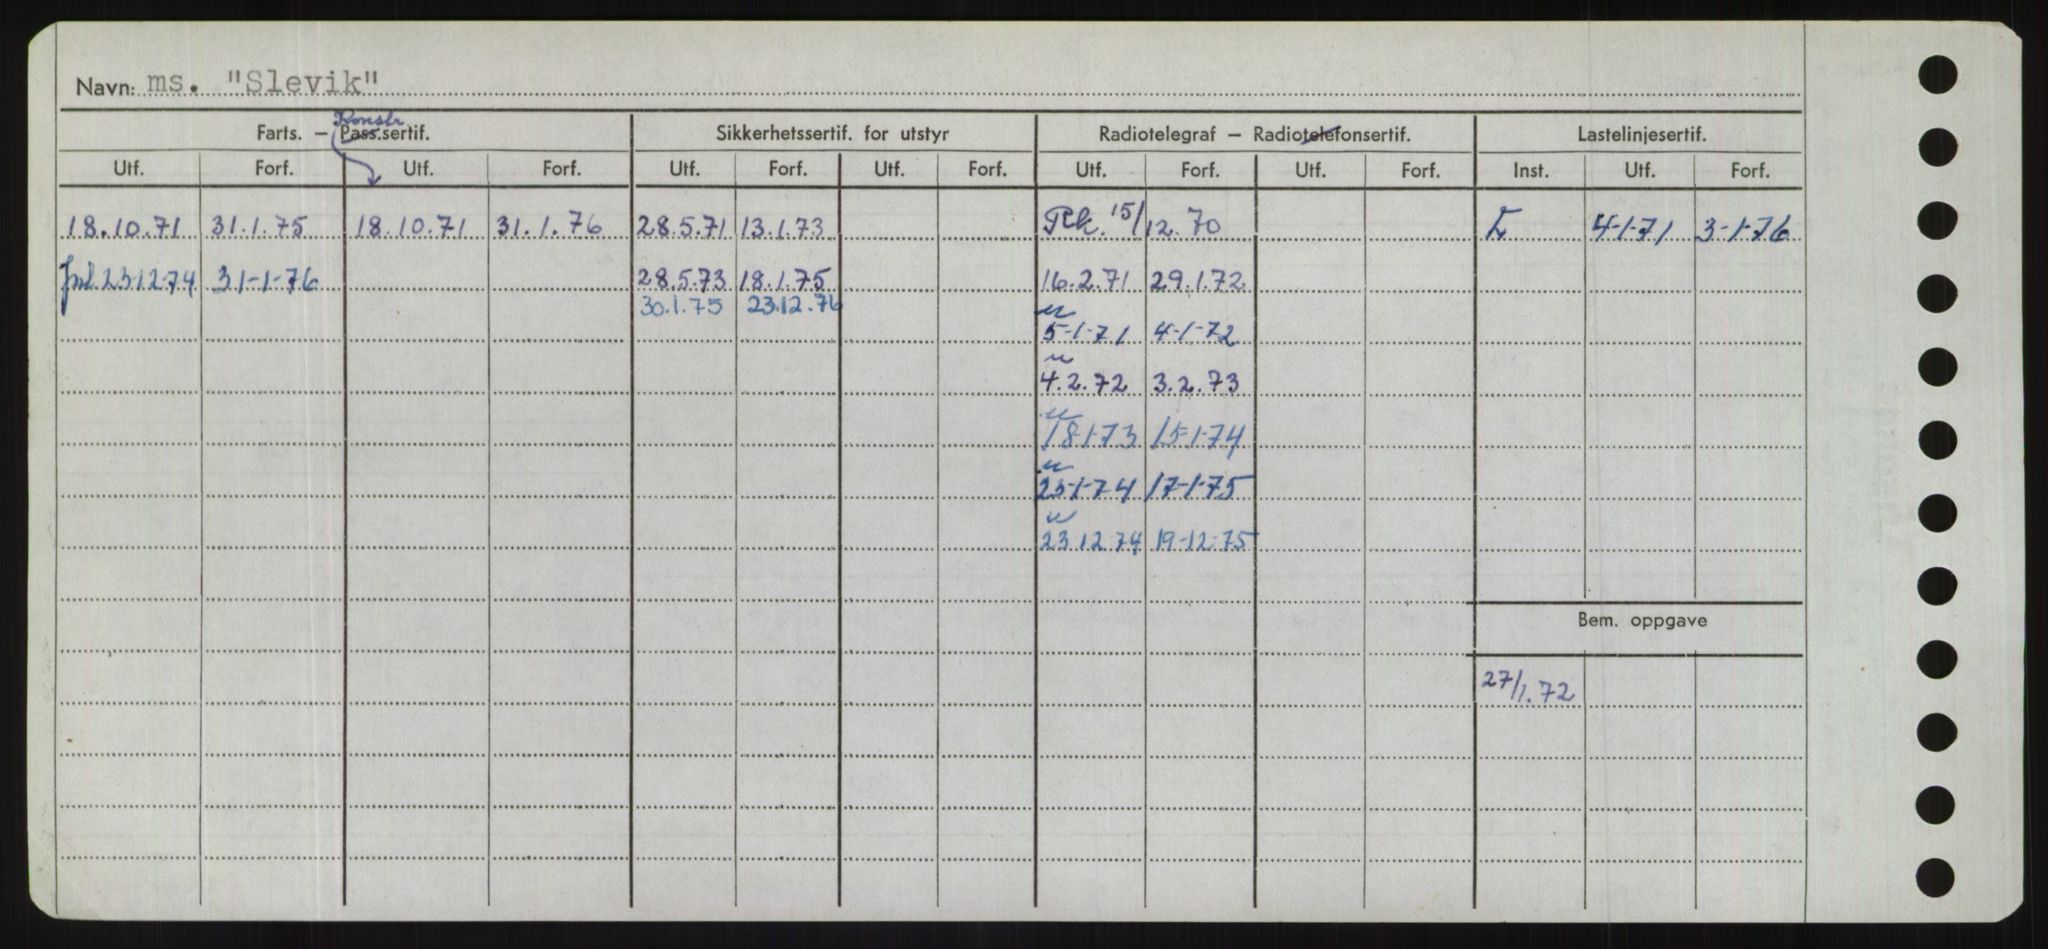 Navn: ms. "Slevik"
Konstr
Farts. – Pass.sertif. Sikkerhetssertif. for utstyr Radiotelegraf – Radiotelefonsertif. Lastelinjesertif.
Utf. Forf. Utf. Forf. Utf. Forf. Utf. Forf. Utf. Forf. Utf. Forf. Inst. Utf. Forf.
18.10.71 31.1.75 18.10.71 31.1.76 28.5.71 13.1.73 15/12.70 4-1-71 3-1-76
23-12-74 31-1-76 28.5.73 18.1.75 16.2.71 29.1.72
30.1.75 23.12.76
5-1-71 4-1-72
4.2.72 3.2.73
18-1-73 15-1-74
23-1-74 17-1-75
23.12.74 19-12-75
Bem. oppgave
27/1.72